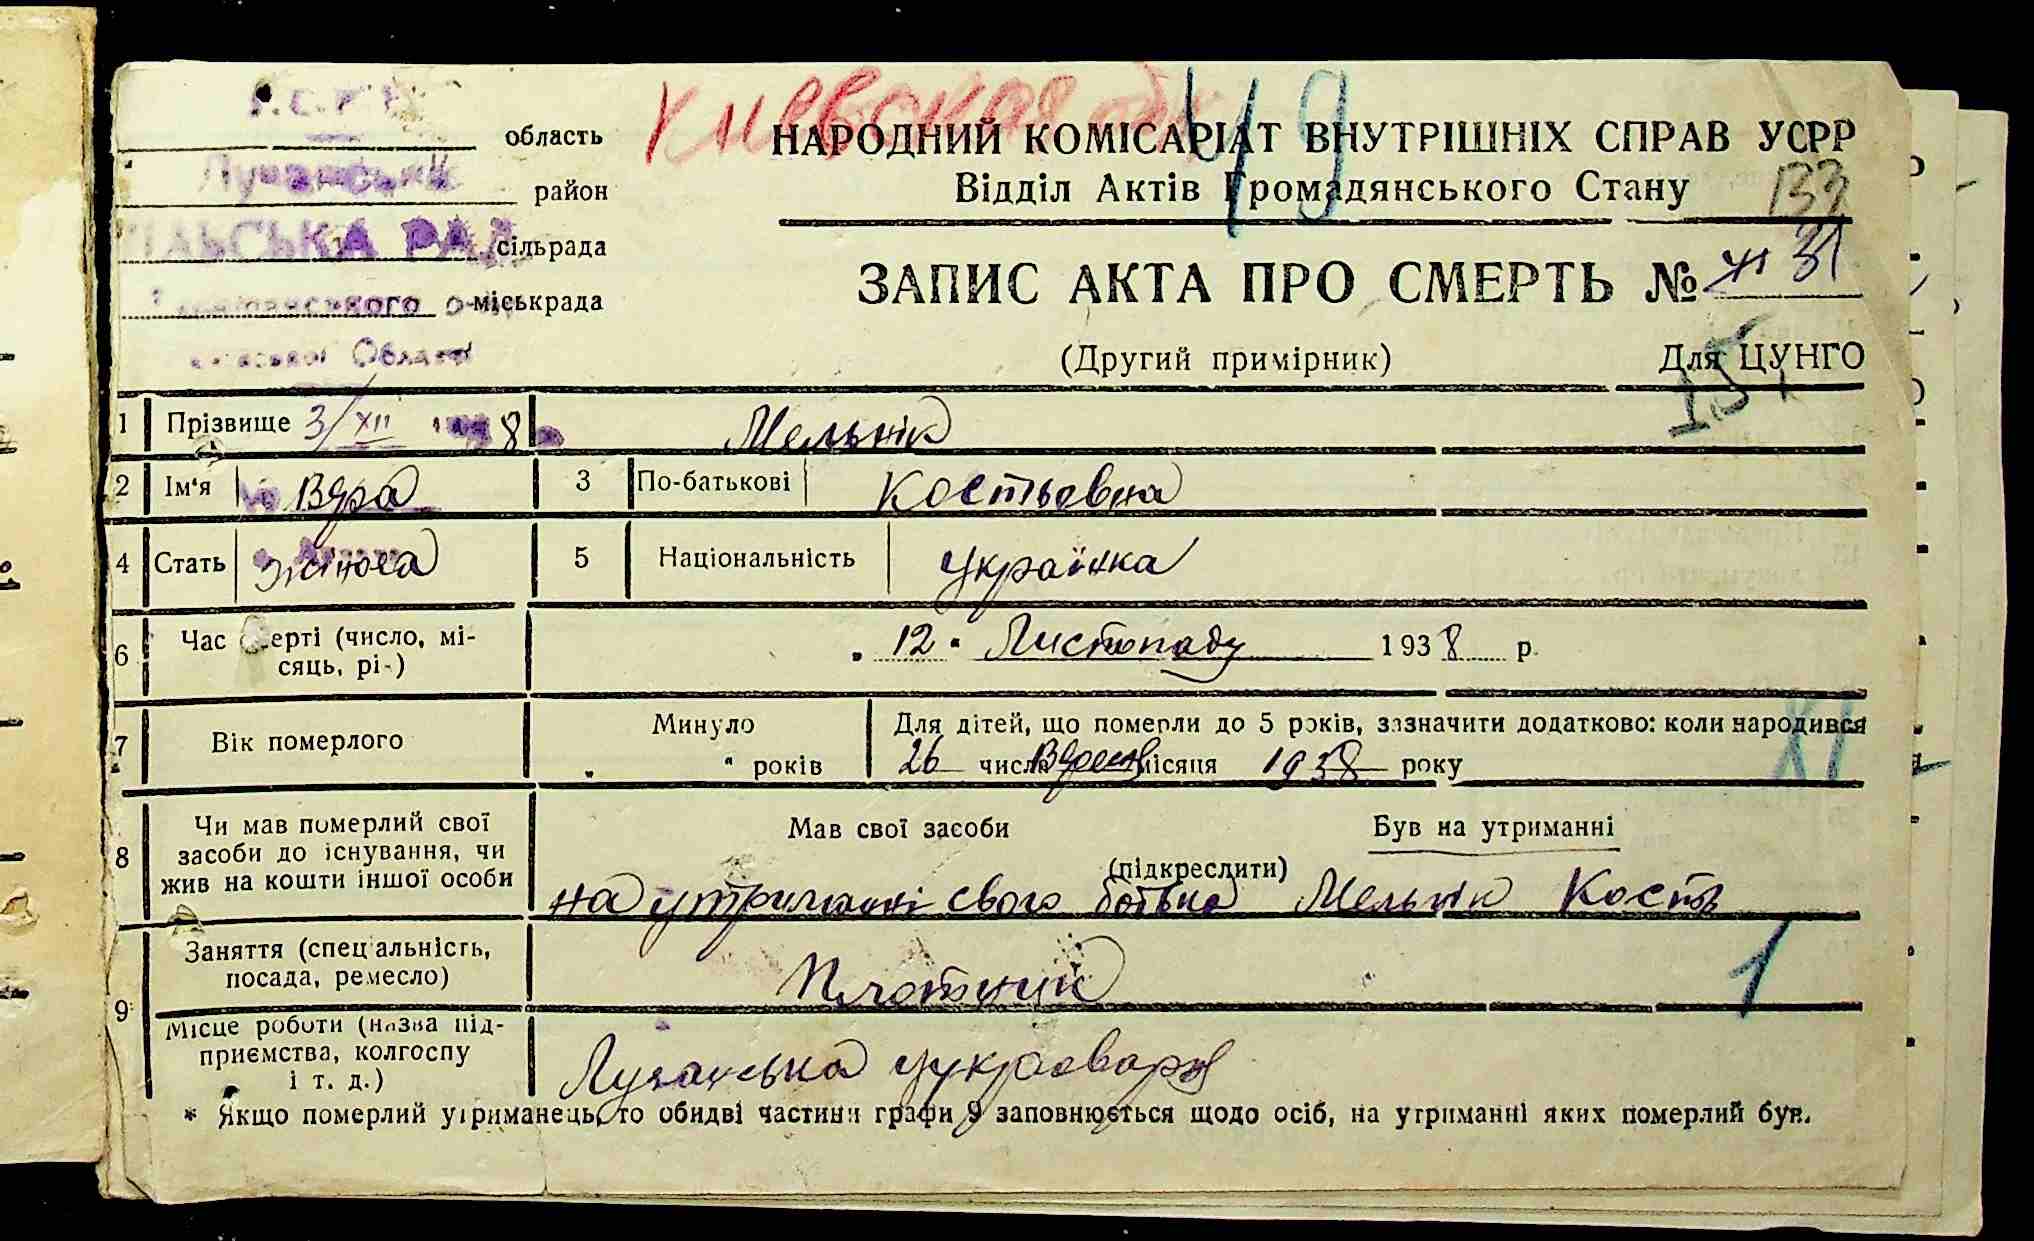 Киевская обл
49
область
район
сільрада
міськрада
Лучанський
СІЛЬСЬКА РАДА
НАРОДНИЙ КОМІСАРІАТ ВНУТРІШНІХ СПРАВ УСРР
Відділ Актів Громадянського Стану
133
ЗАПИС АКТА ПРО СМЕРТЬ № 31
(Другий примірник) Для ЦУНГО
15
1 Прізвище 3/XII 1938 Мельнік
2 Ім'я Вера 3 По-батькові Костьовна
4 Стать жіноча 5 Національність українка
6 Час смерті (число, мі-
сяць, рік) „ 12 " Листопаду 1938 р.
7 Вік померлого Минуло „ " років
Для дітей, що померли до 5 років, зазначити додатково: коли народився
26 числа Вересня місяця 1938 року
XI
8 Чи мав померлий свої
засоби до існування, чи
жив на кошти іншої особи
Мав свої засоби Був на утриманні
(підкреслити)
на утриманні свого батька Мельнік Кость
9 Заняття (спеціальність,
посада, ремесло) Плотник
1
Місце роботи (назва під-
приємства, колгоспу
і т. д.) Лучанська цукроварня
* Якщо померлий утриманець, то обидві частини графи 9 заповнюється щодо осіб, на утриманні яких померлий був.